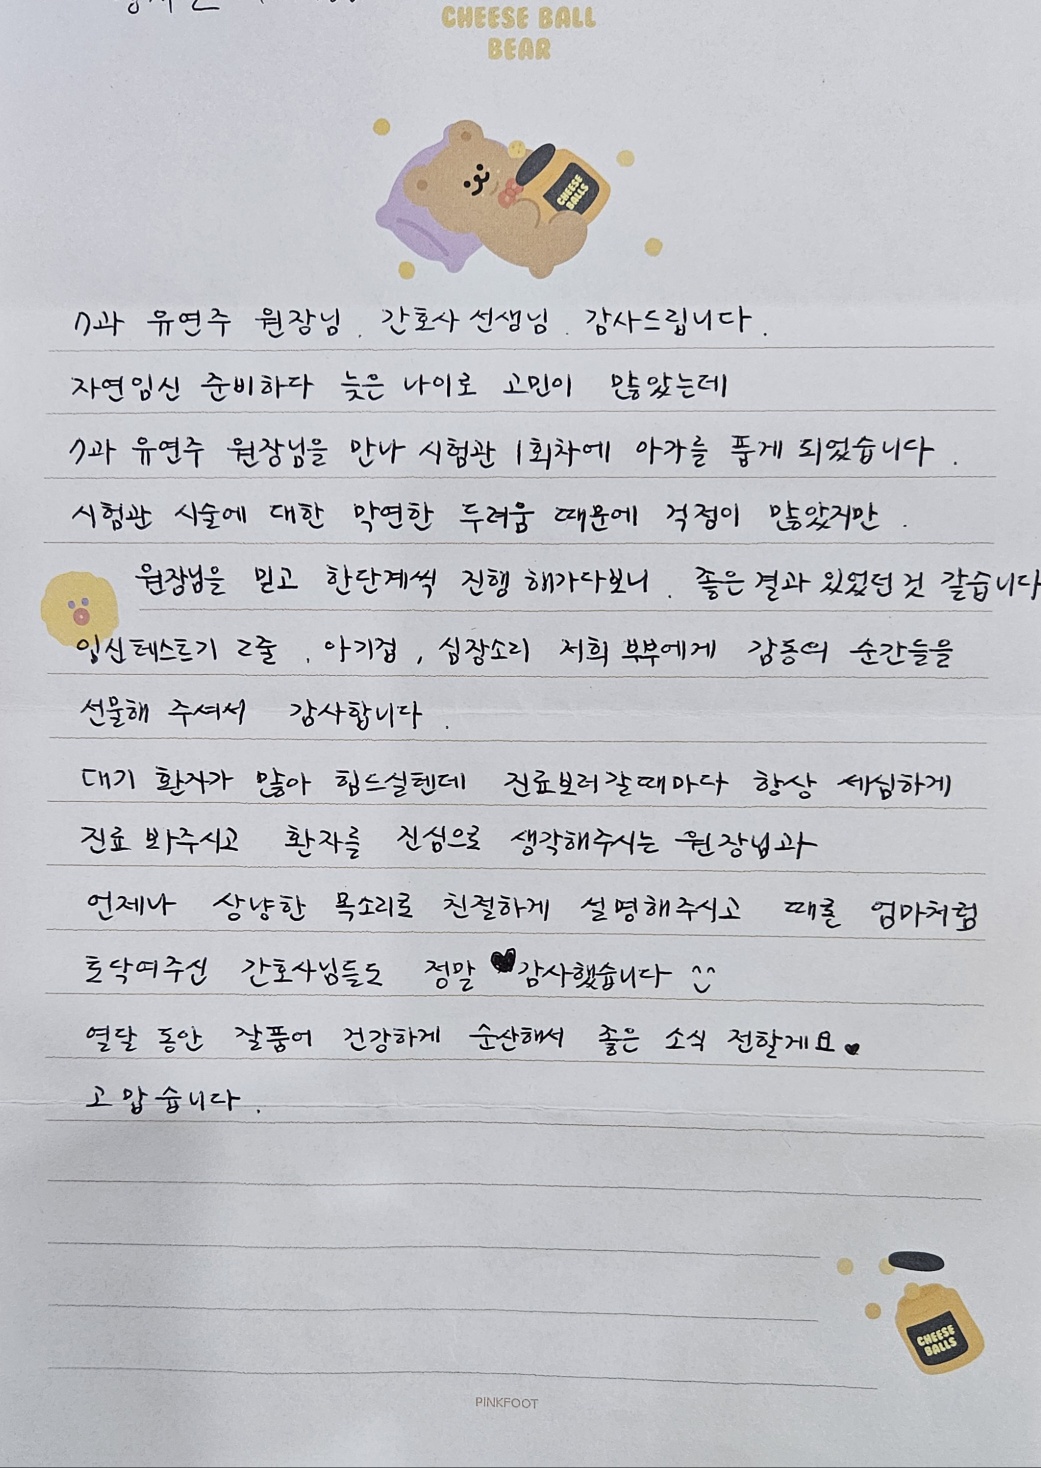 CHEESE BALL
BEAR
CHEESE
BALLS
7과 유연주 원장님. 간호사 선생님. 감사드립니다.
자연임신 준비하다 늦은 나이로 고민이 많았는데
7과 유연주 원장님을 만나 시험관 1회차에 아가를 품게 되었습니다.
시험관 시술에 대한 막연한 두려움 때문에 걱정이 많았지만.
원장님을 믿고 한단계씩 진행 해가다보니. 좋은 결과 있었던 것 같습니다
임신테스트기 2줄. 아기집, 심장소리 저희 부부에게 감동의 순간들을
선물해 주셔서 감사합니다.
대기 환자가 많아 힘드실텐데 진료보러갈때마다 항상 세심하게
진료 봐주시고 환자를 진심으로 생각해주시는 원장님과
언제나 상냥한 목소리로 친절하게 설명해주시고 때론 엄마처럼
토닥여주신 간호사님들도 정말 ♥감사했습니다 ^^
열달 동안 잘품어 건강하게 순산해서 좋은 소식 전할게요♥
고맙습니다.
CHEESE
BALLS
PINKFOOT